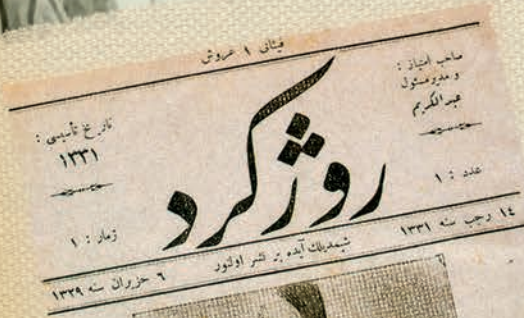 فیئاتی ١ غروش
صاحب امتیاز :
و مدیر مسئول
عبدالکریم
عدد : ١
روژ کرد
تاریخ تأسیسی :
١٣٣١
ژمار : ١
١٤ رجب سنه ١٣٣١
شیمدیلك آیده بر نشر اولنور
٦ حزیران سنه ١٣٢٩